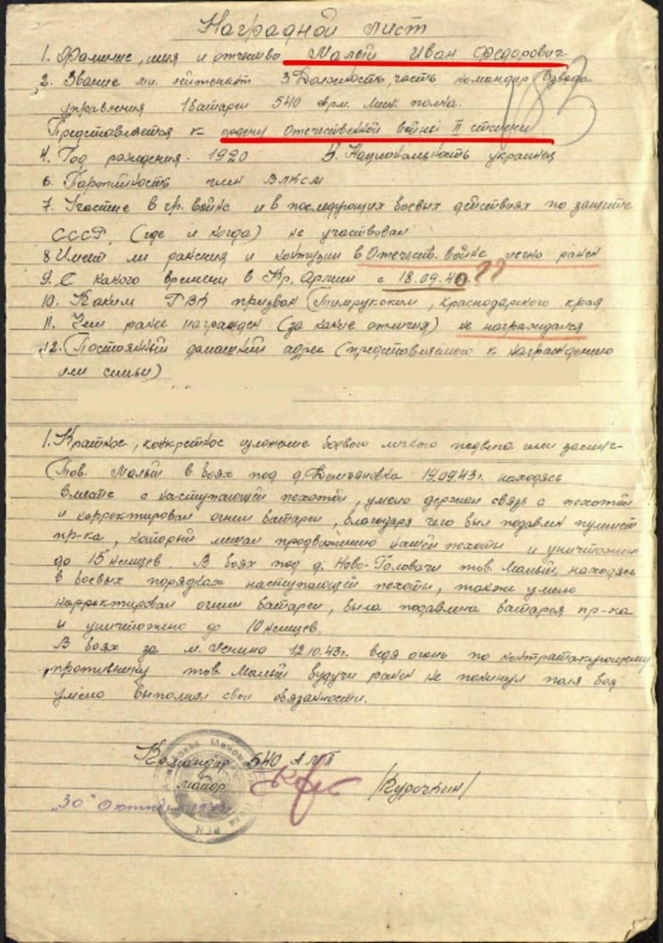 Наградной лист
1. Фамилие, имя и отчество Малый Иван Федорович
2. Звание мл. лейтенант 3 Должность, часть командир взвода
управления 1 батареи 540 Арм. Мин. полка.
Представляется к ордену Отечественной войны II степени
4. Год рождения 1920 Национальность украинец
6. Партийность член ВЛКСМ
7. Участие в гр. войне и в последующих боевых действиях по защите
СССР (где и когда) не участвовал
8 Имеет ли ранения и контузии в Отечеств. войне легко ранен
9. С какого времени в Кр. Армии с 18.09.40
10. Каким РВК призван Темрукским, Краснодарского края
11. Чем ранее награжден (за какие отличия) не награждался
12. Постоянный домашний адрес (представляемого к награждению
или семьи)
1. Краткое, конкретное изложение боевого личного подвига или заслуг
Тов. Малый в боях под д. 19.09.43г. находясь
вместе с наступающей пехотой, умело держал связь с пехотой
и корректировал огнем батареи, благодаря чего был подавлен пулемет
пр-ка, который мешал продвижению нашей пехоты и уничтожено
до 15 немцев. В боях под д. Ново-Головачи тов. Малый, находясь
в боевых порядках наступающей пехоты, также умело
корректировал огнем батареи, была подавлена батарея пр-ка
и уничтожено до 10 немцев.
В боях за м. Ленино 12.10.43г. ведя огонь по контратакующему
противнику тов. Малый будучи ранен не покинул поля боя
умело выполнял свои обязанности.
Командир 540 АМП
майор /Курочкин/
"30" Октября
183